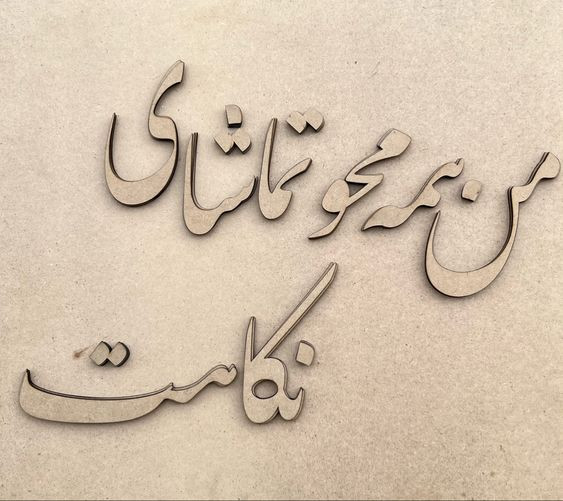 من همه محو تماشای
نگاهت